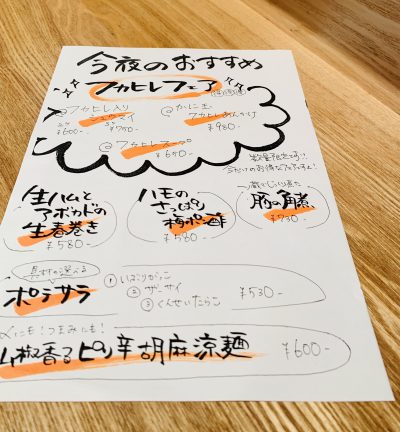 今夜のおすすめ
フカヒレフェア
フカヒレ入り
シュウマイ
¥600-
¥750-
かに玉
フカヒレあんかけ
¥980-
フカヒレスープ
¥650-
数量限定です!!
生ハムと
アボカドの
生春巻き
¥580-
ハモの
さっぱり
梅ポン酢
¥580-
豚の角煮
¥730-
具材が選べる
ポテサラ
①いぶりがっこ
②ザーサイ
③くんせいたらこ
¥530-
〆にも!つまみにも!
山椒香るピリ辛胡麻涼麺
¥600-